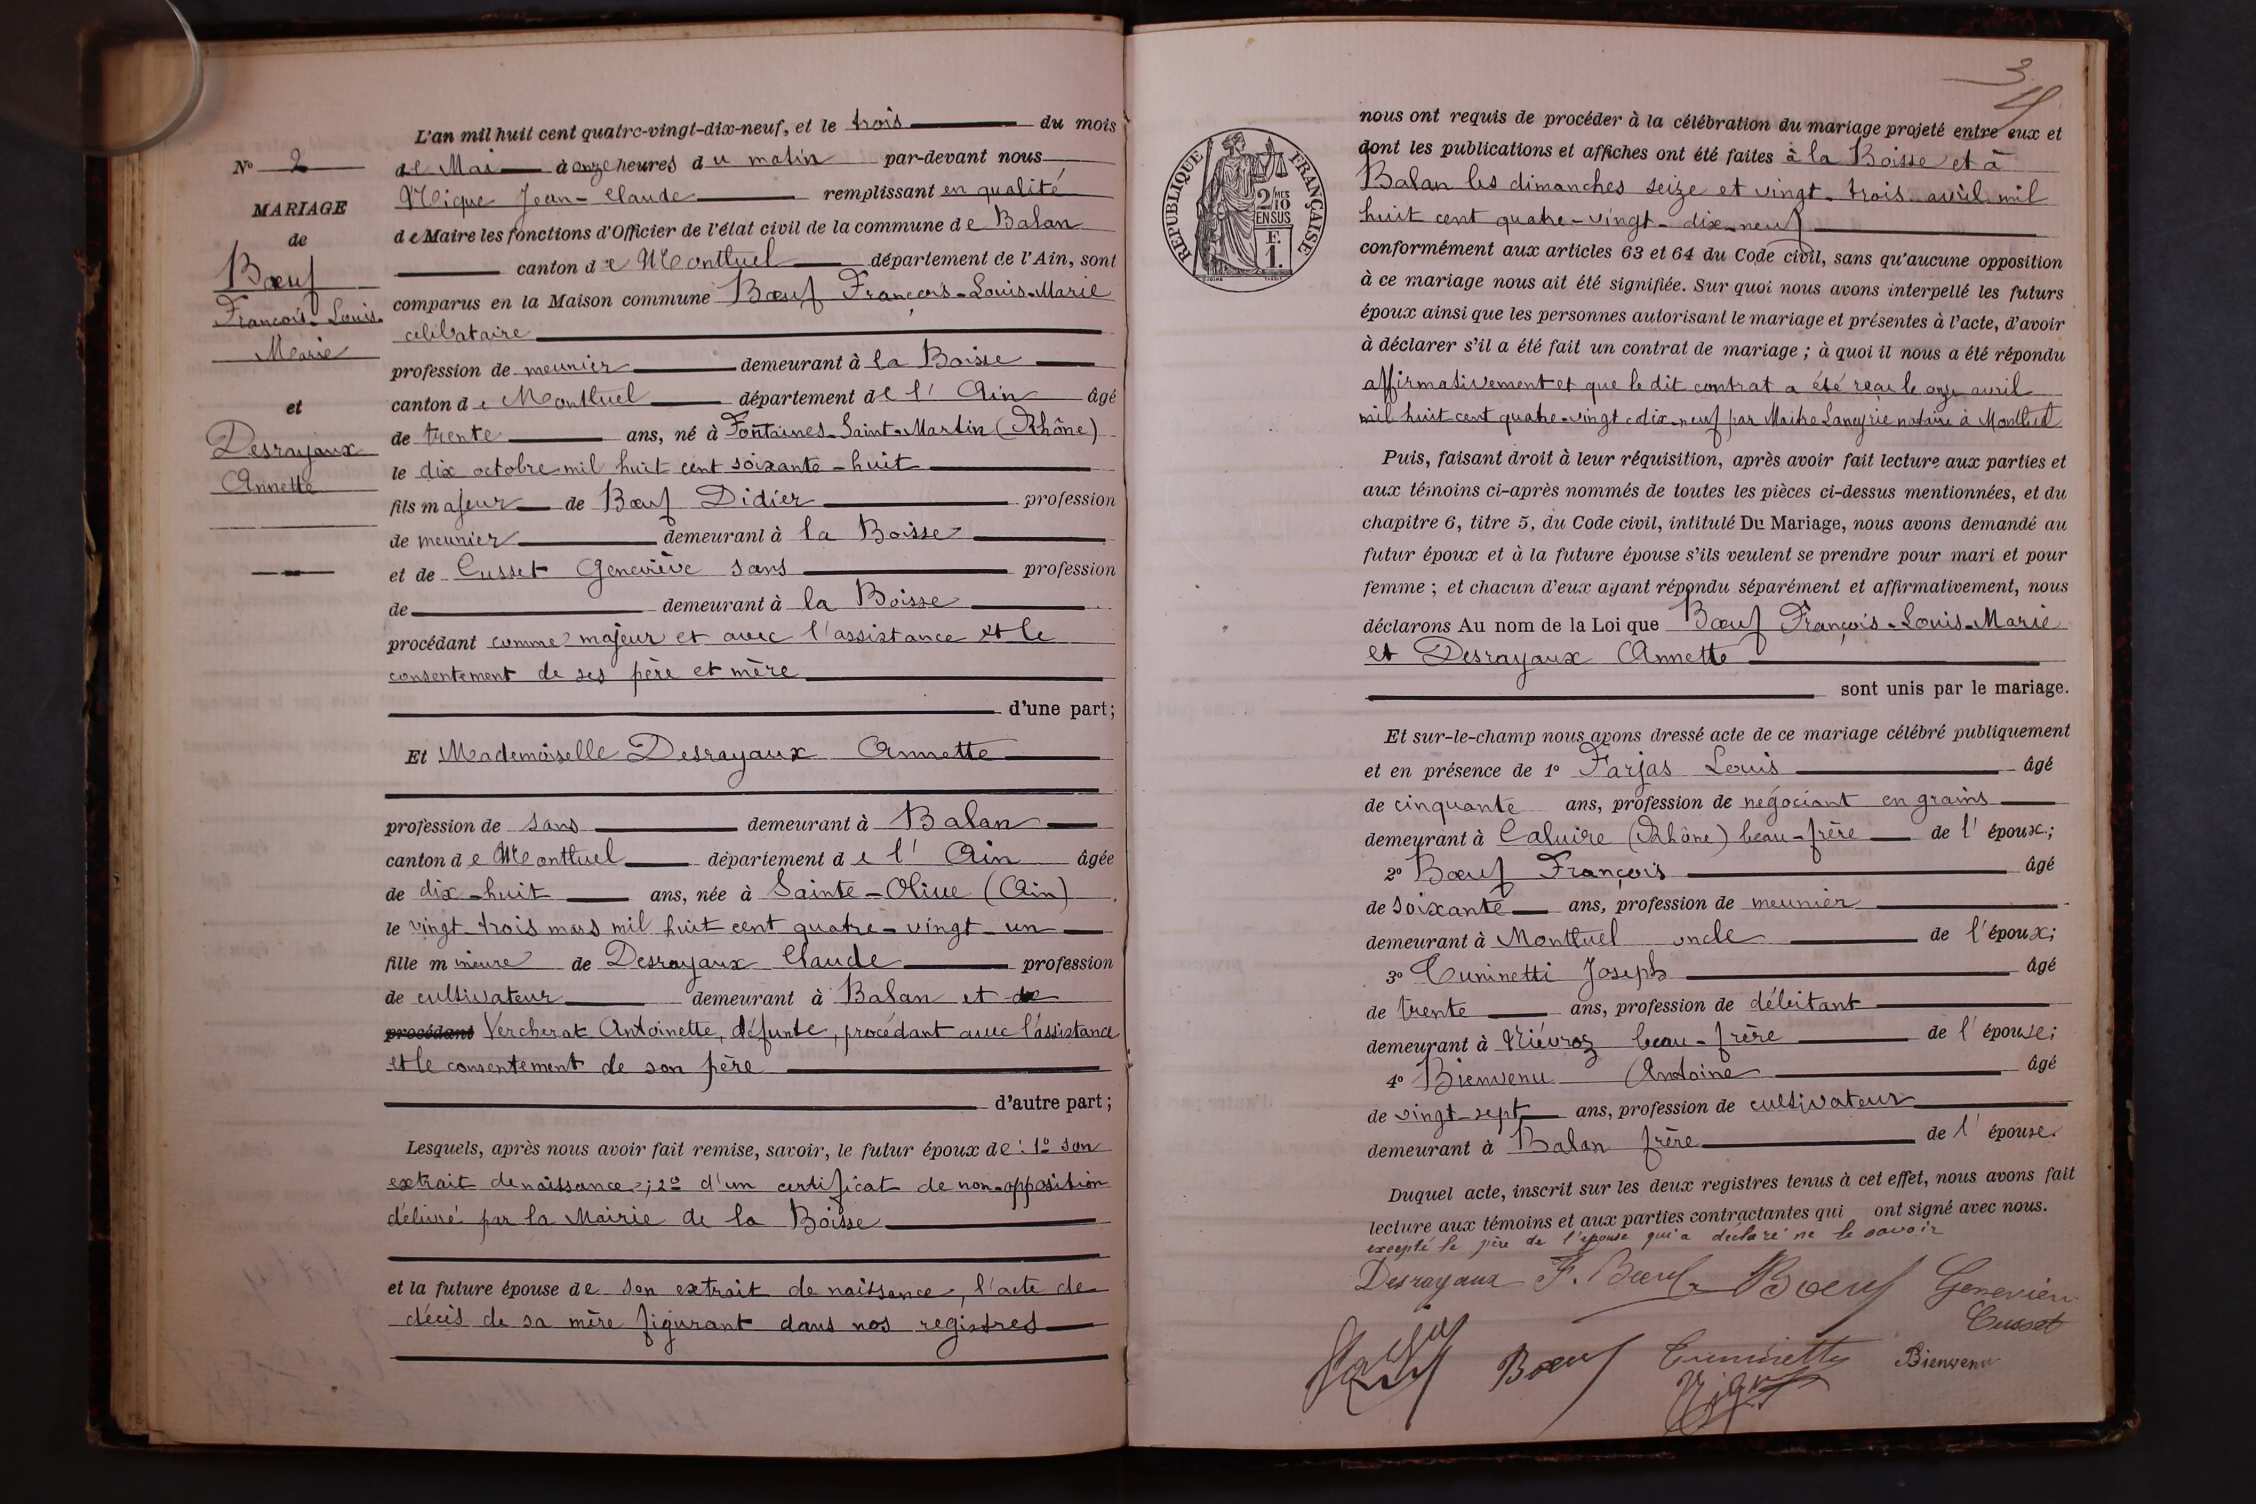 N° 2
MARIAGE
de
Bœuf
François-Louis-
Marie
et
Desrayaux
Annette
L'an mil huit cent quatre-vingt-dix-neuf, et le trois du mois
de Mai à onze heures du matin par-devant nous
Nique Jean-Claude remplissant en qualité
de Maire les fonctions d'Officier de l'état civil de la commune de Balan
canton de Montluel département de l'Ain, sont
comparus en la Maison commune Bœuf François-Louis-Marie
célibataire
profession de meunier demeurant à la Boisse
canton de Montluel département de l'Ain âgé
de trente ans, né à Fontaines-Saint-Martin (Rhône)
le dix octobre mil huit cent soixante-huit
fils majeur de Bœuf Didier profession
de meunier demeurant à la Boisse
et de Cusset Geneviève sans profession
de demeurant à la Boisse
procédant comme majeur et avec l'assistance et le
consentement de ses père et mère
d'une part;
Et Mademoiselle Desrayaux Annette
profession de sans demeurant à Balan
canton de Montluel département de l'Ain âgée
de dix-huit ans, née à Sainte-Olive (Ain)
le vingt-trois mars mil huit cent quatre-vingt-un
fille mineure de Desrayaux Claude profession
de cultivateur demeurant à Balan et de
procédant Vercherat Antoinette, défunte, procédant avec l'assistance
et le consentement de son père
d'autre part;
Lesquels, après nous avoir fait remise, savoir, le futur époux de : 1° son
extrait de naissance; 2° d'un certificat de non-opposition
délivré par la Mairie de la Boisse
et la future épouse de son extrait de naissance, l'acte de
décès de sa mère figurant dans nos registres
3
RÉPUBLIQUE FRANÇAISE
2/10 MES
EN SUS
F.
1.
nous ont requis de procéder à la célébration du mariage projeté entre eux et
dont les publications et affiches ont été faites à la Boisse et à
Balan les dimanches seize et vingt-trois avril mil
huit cent quatre-vingt-dix-neuf
conformément aux articles 63 et 64 du Code civil, sans qu'aucune opposition
à ce mariage nous ait été signifiée. Sur quoi nous avons interpellé les futurs
époux ainsi que les personnes autorisant le mariage et présentes à l'acte, d'avoir
à déclarer s'il a été fait un contrat de mariage ; à quoi il nous a été répondu
affirmativement et que le dit contrat a été reçu le onze avril
mil huit cent quatre-vingt-dix-neuf par Maître Laneyrie notaire à Montluel
Puis, faisant droit à leur réquisition, après avoir fait lecture aux parties et
aux témoins ci-après nommés de toutes les pièces ci-dessus mentionnées, et du
chapitre 6, titre 5, du Code civil, intitulé Du Mariage, nous avons demandé au
futur époux et à la future épouse s'ils veulent se prendre pour mari et pour
femme ; et chacun d'eux ayant répondu séparément et affirmativement, nous
déclarons Au nom de la Loi que Bœuf François-Louis-Marie
et Desrayaux Annette
sont unis par le mariage.
Et sur-le-champ nous avons dressé acte de ce mariage célébré publiquement
et en présence de 1° Farjas Louis âgé
de cinquante ans, profession de négociant en grains
demeurant à Caluire (Rhône) beau-frère de l'époux;
2° Bœuf François âgé
de soixante ans, profession de meunier
demeurant à Montluel oncle de l'époux;
3° Cuninetti Joseph âgé
de trente ans, profession de débitant
demeurant à Niévroz beau-frère de l'épouse;
4° Bienvenu Antoine âgé
de vingt-sept ans, profession de cultivateur
demeurant à Balan frère de l'épouse.
Duquel acte, inscrit sur les deux registres tenus à cet effet, nous avons fait
lecture aux témoins et aux parties contractantes qui ont signé avec nous.
excepté le père de l'épouse qui a déclaré ne le savoir
Desrayaux F. Bœuf Bœuf Geneviève
Cusset
Bœuf Cuninetti Bienvenu